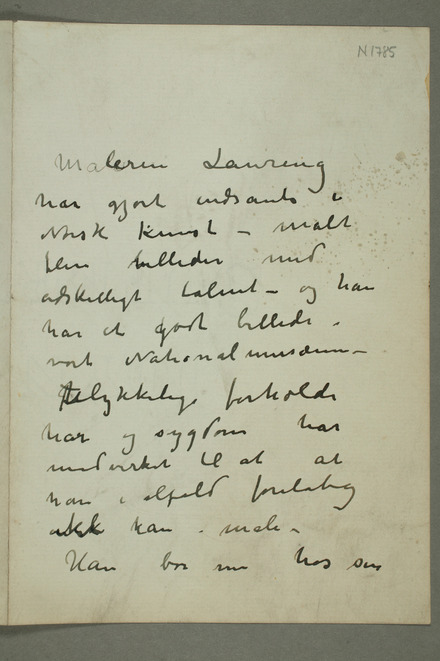 N 1785
Maleren Laureng
har gjort indsants i
Norsk Kunst – malt
flere billeder med
adskelligt talent – og han
har et godt billede i
vort National musæum –
Ulykkelige forholde
har og sygdom har
medvirket til at at
han i alfald foreløbig
ikke kan – male –
Han bor nu hos sin